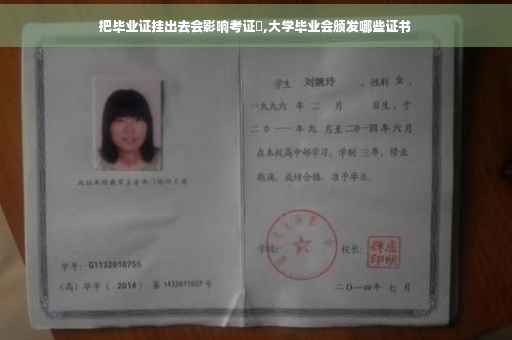 把毕业证挂出去会影响考证,大学毕业会颁发哪些证书
学生 刘婉玲 ，性别 女 ，
一九九六 年 二 月 日生，于
二〇一一年九 月至二〇一四年六月
在本校高中部学习，学制 三年，修业
期满，成绩合格，准予毕业。
学校：
校长：
学号：G1132010755
（高）毕字（ 2014 ）第 1432011037 号
二〇一四年 七 月